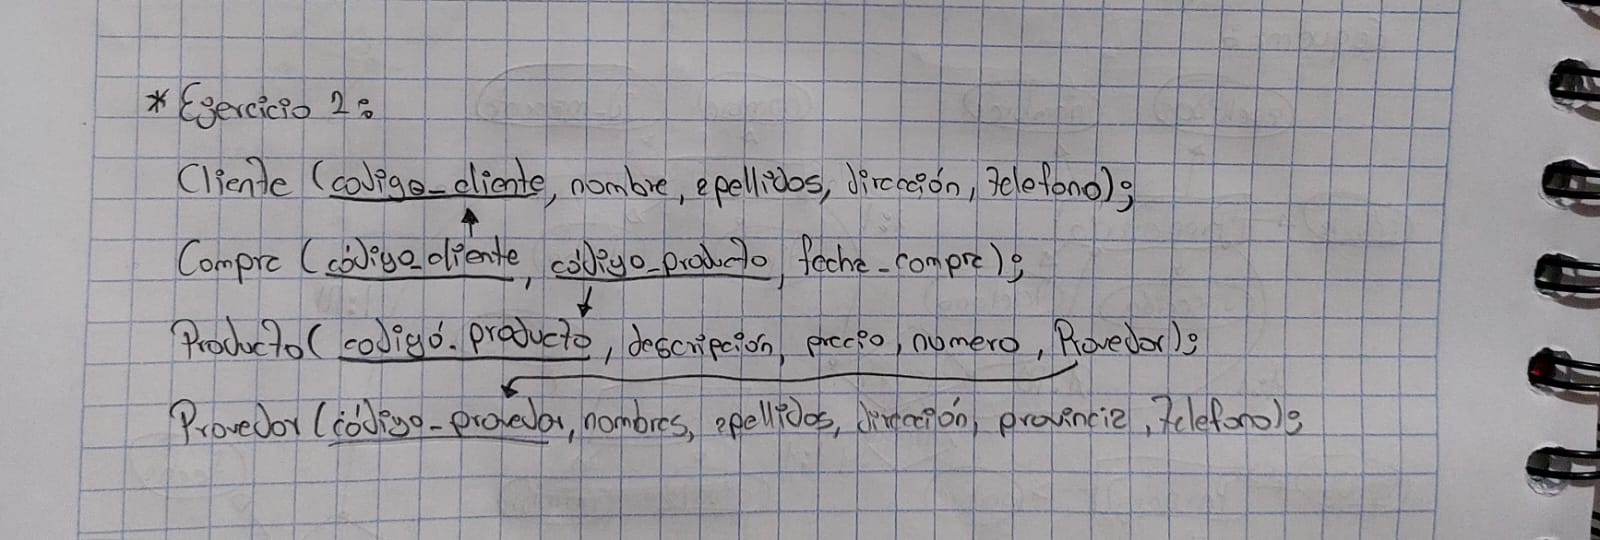 * Ejercicio 2:
Cliente (codigo_cliente, nombre, apellidos, dirección, telefono);
Compra (código_cliente, código_producto, fecha_compra);
Producto (codigó_producto, descripción, precio, numero, Provedor);
Provedor (código_provedor, nombres, apellidos, dirección, provincia, telefono);